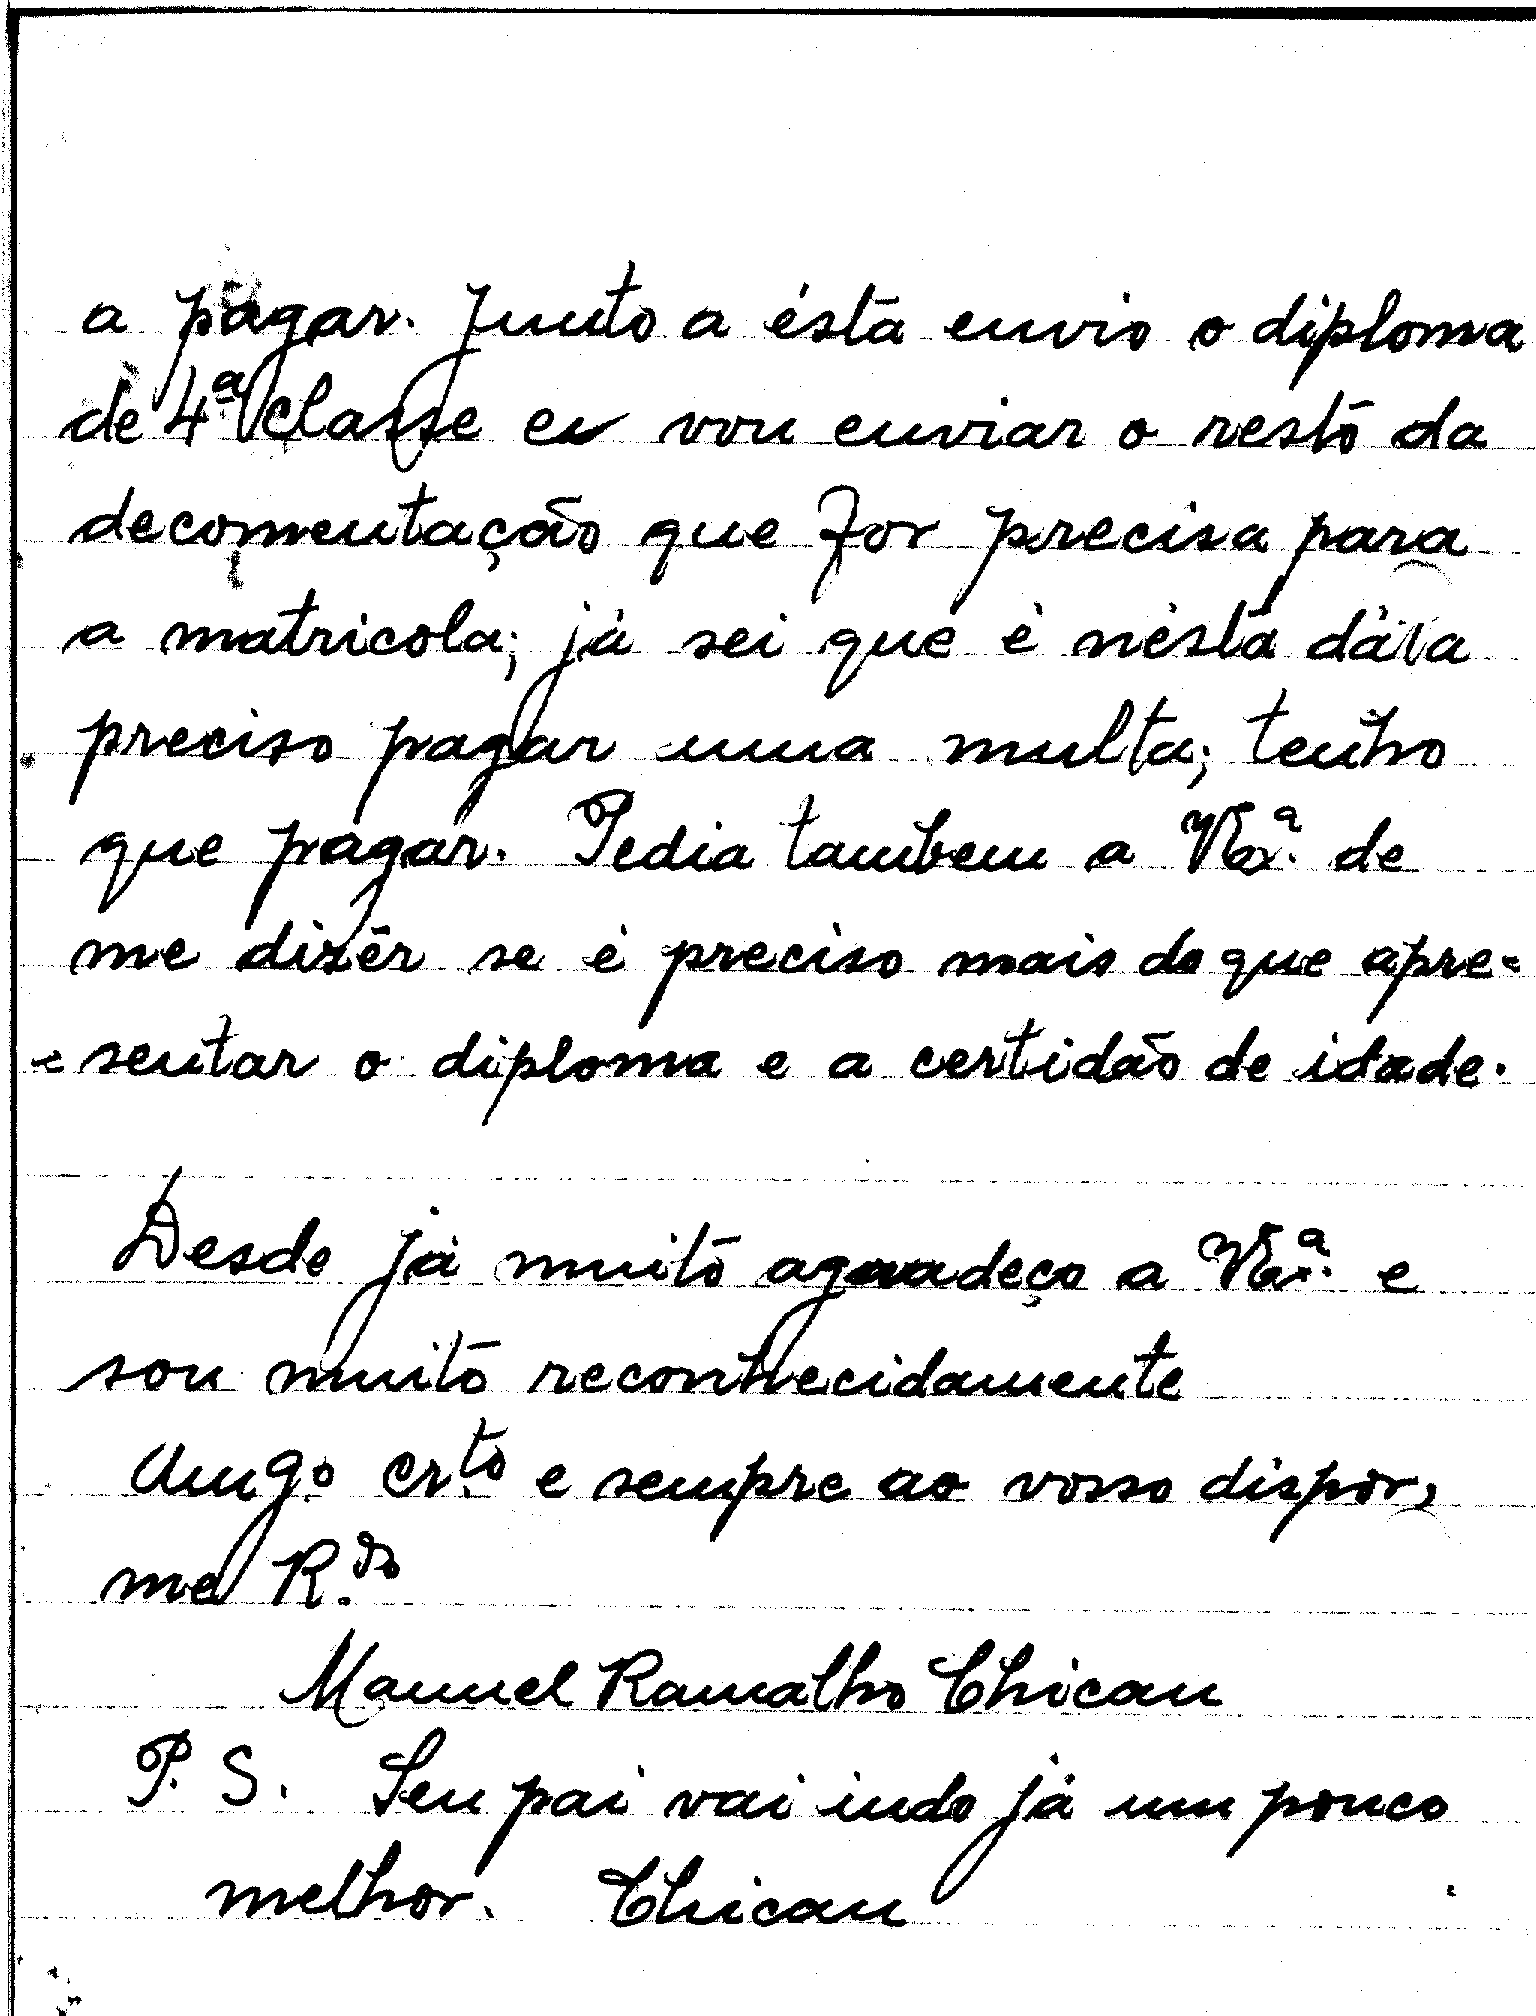 a pagar. Junto a ésta envio o diploma
de 4ª classe eu vou enviar o resto da
decomentação que for precisa para
a matricola; já sei que é nésta dáta
preciso pagar uma multa; tenho
que pagar. Pedia tambem a V. Exª. de
me dizêr se é preciso mais do que apre=
=sentar o diploma e a certidão de idade.
Desde já muito agradeço a V. Exª. e
sou muito reconhecidamente
Amgº. crtº. e sempre ao vosso dispôr,
me R.do
Manuel Ramalho Chicau
P. S. Seu pai vai indo já um pouco
melhor. Chicau